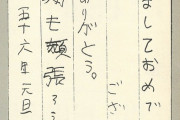 ましておめで
ござ
ありがとう。
も頑張ろう
五十六年元旦